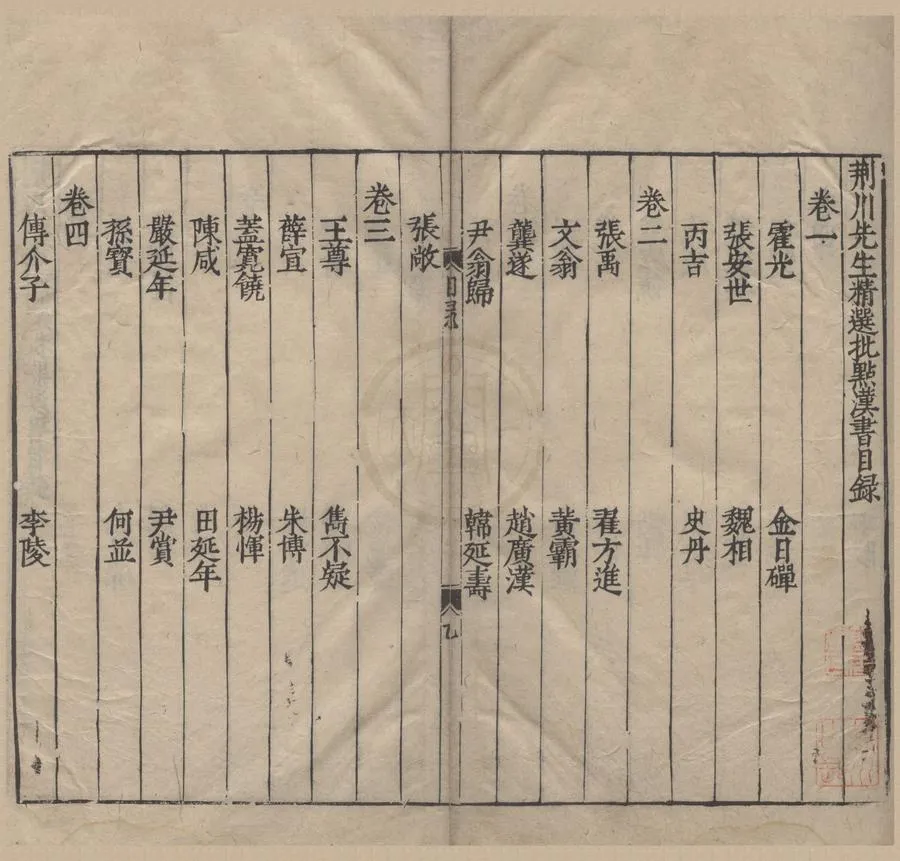 荆川先生精選批點漢書目録
卷一
霍光 金日磾
張安世 魏相
丙吉 史丹
卷二
張禹 翟方進
文翁 黃霸
龔遂 趙廣漢
尹翁歸 韓延壽
目录
張敞
卷三
王尊 雋不疑
薛宣 朱博
蓋寬饒 楊惲
陳咸 田延年
嚴延年 尹賞
孫寳 何並
卷四
傅介子 李陵